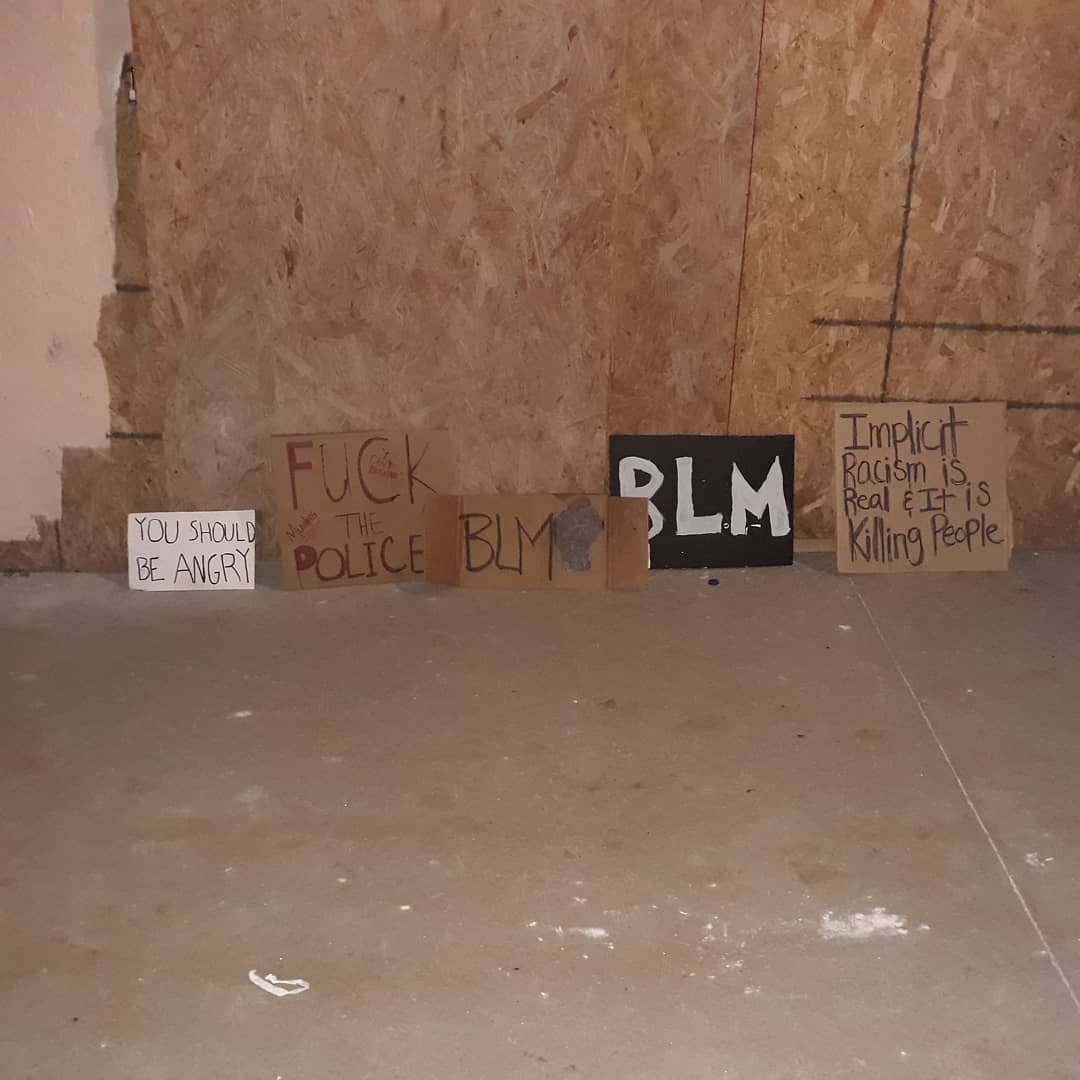 YOU SHOULD
BE ANGRY
FUCK
THE
POLICE
BLM
BLM
Implicit
Racism is
Real & It is
Killing People